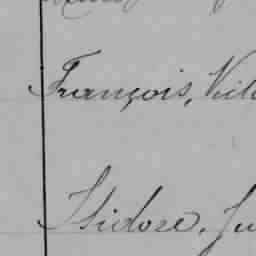 François, Vict
Isidore, Ju